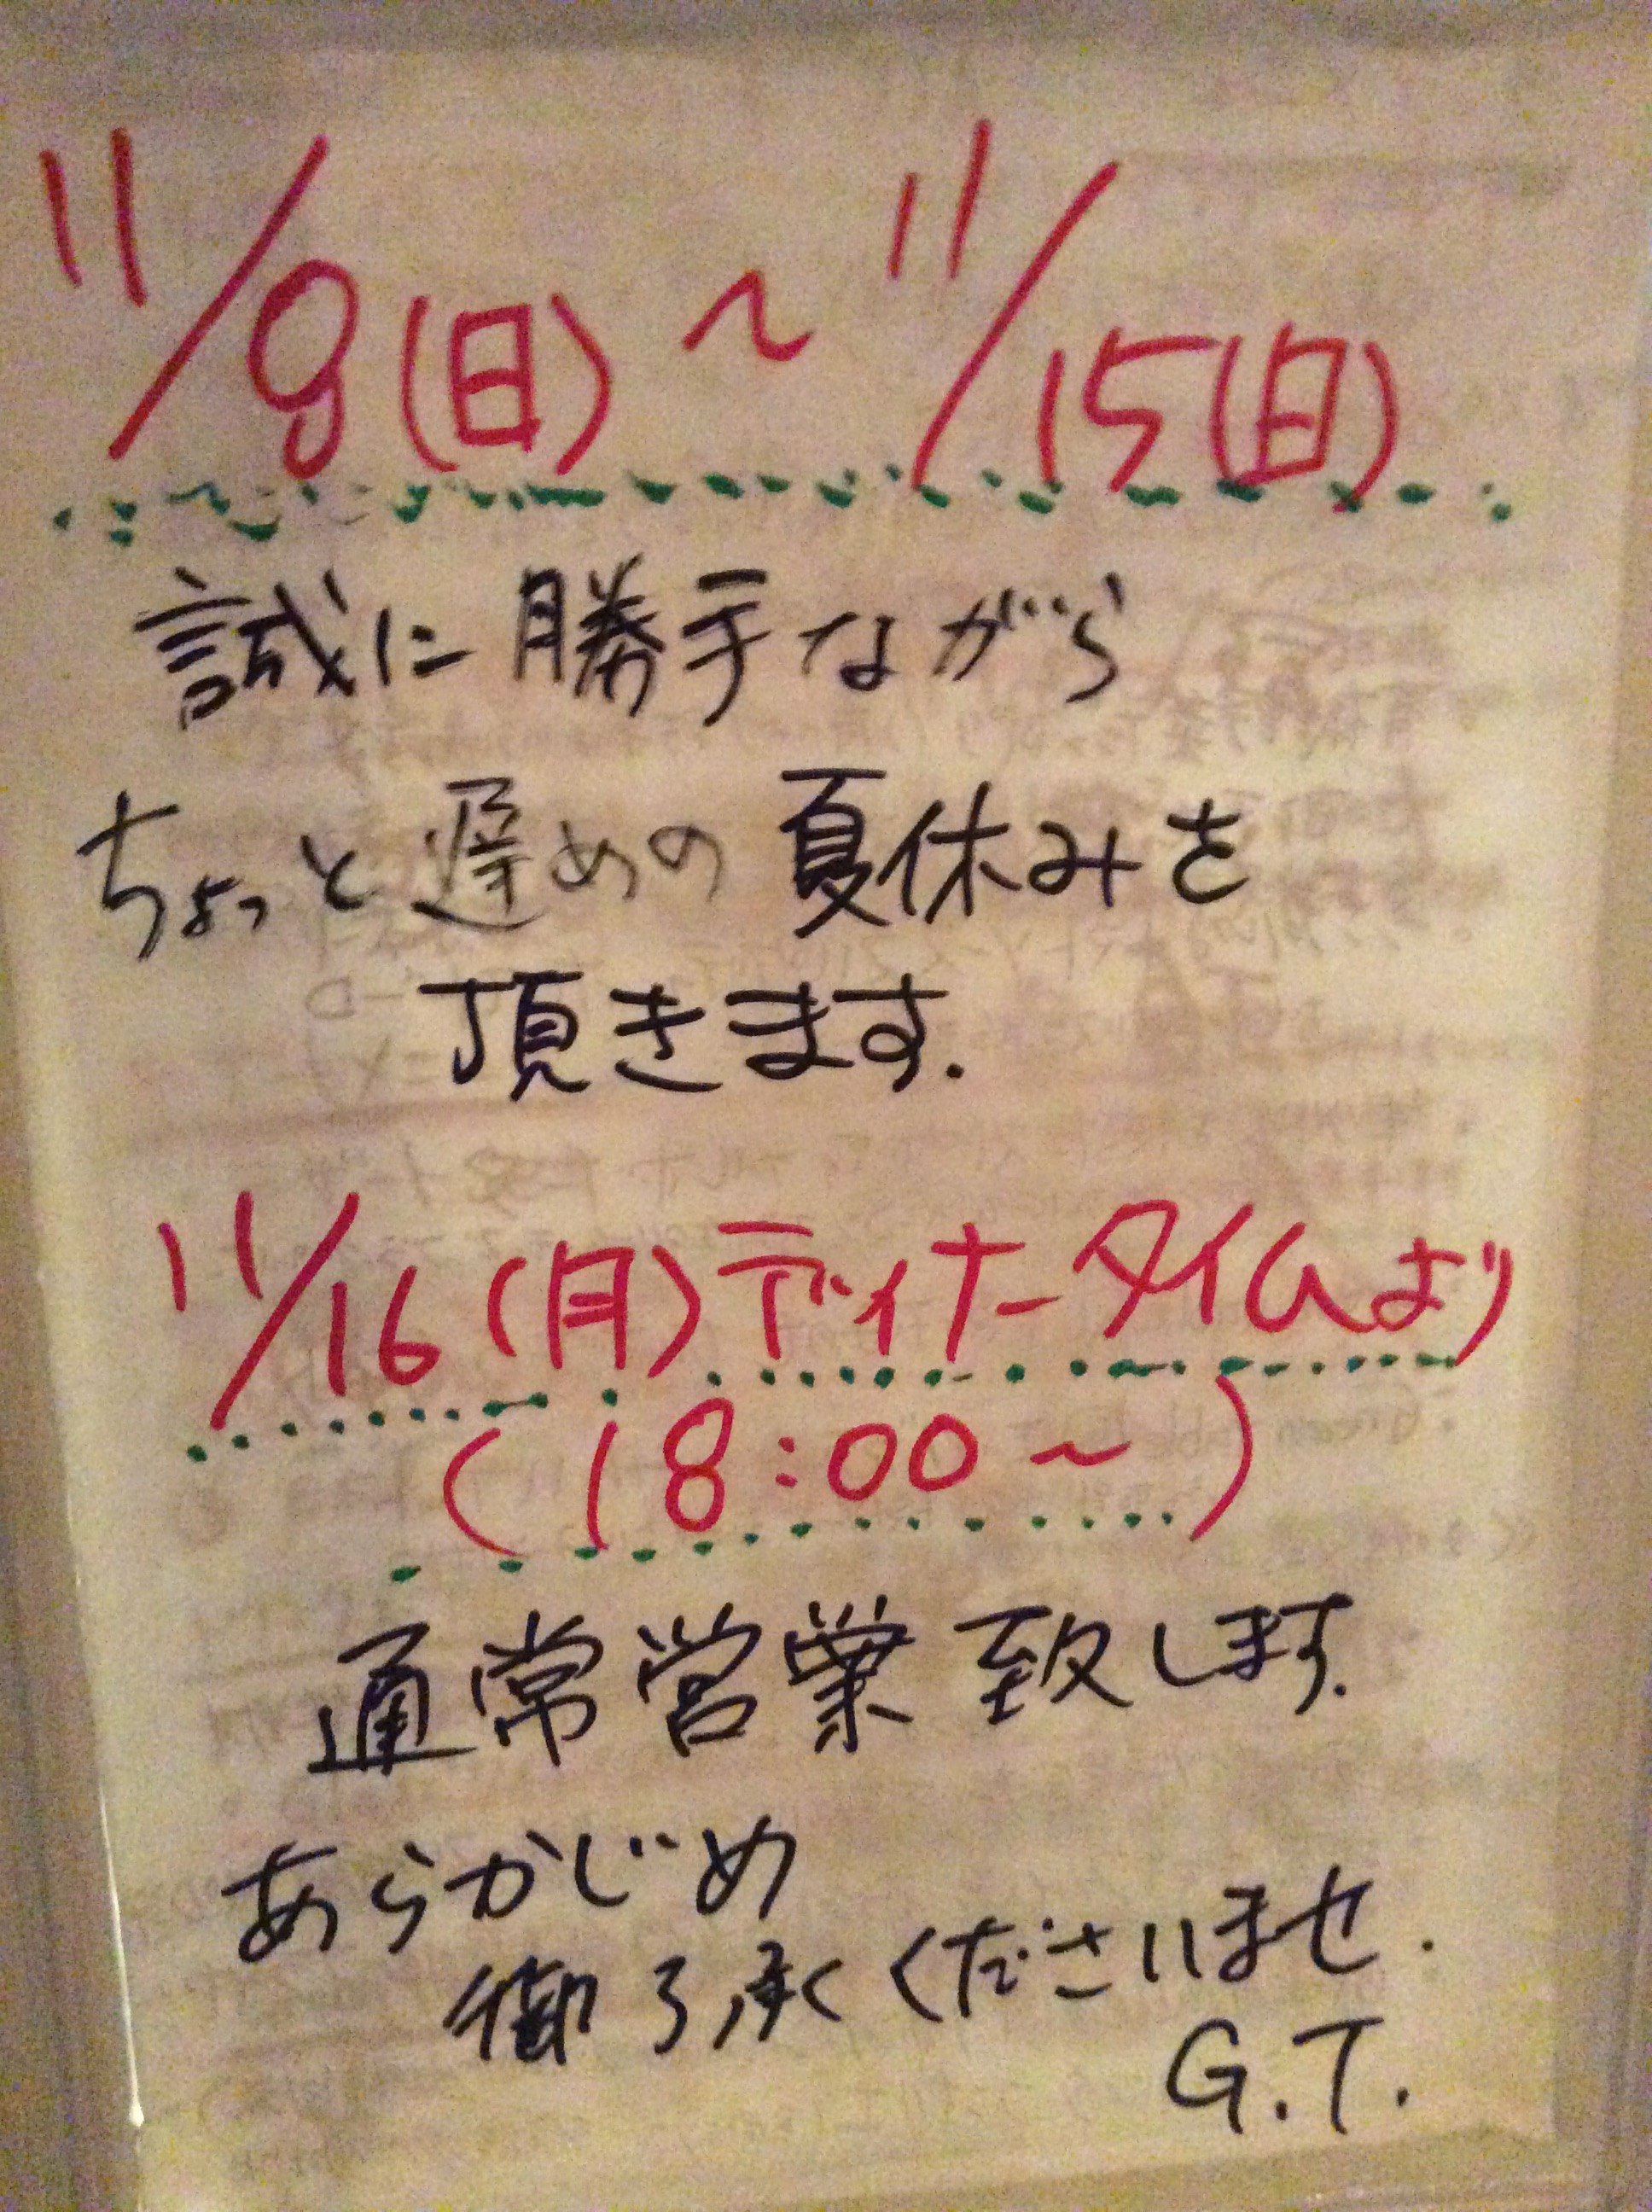 11/8(日)～11/15(日)
誠に勝手ながら
ちょっと遅めの夏休みを
頂きます.
11/16(月)ディナータイムより
(18:00～)
通常営業致します.
あらかじめ
御了承くださいませ.
G.T.